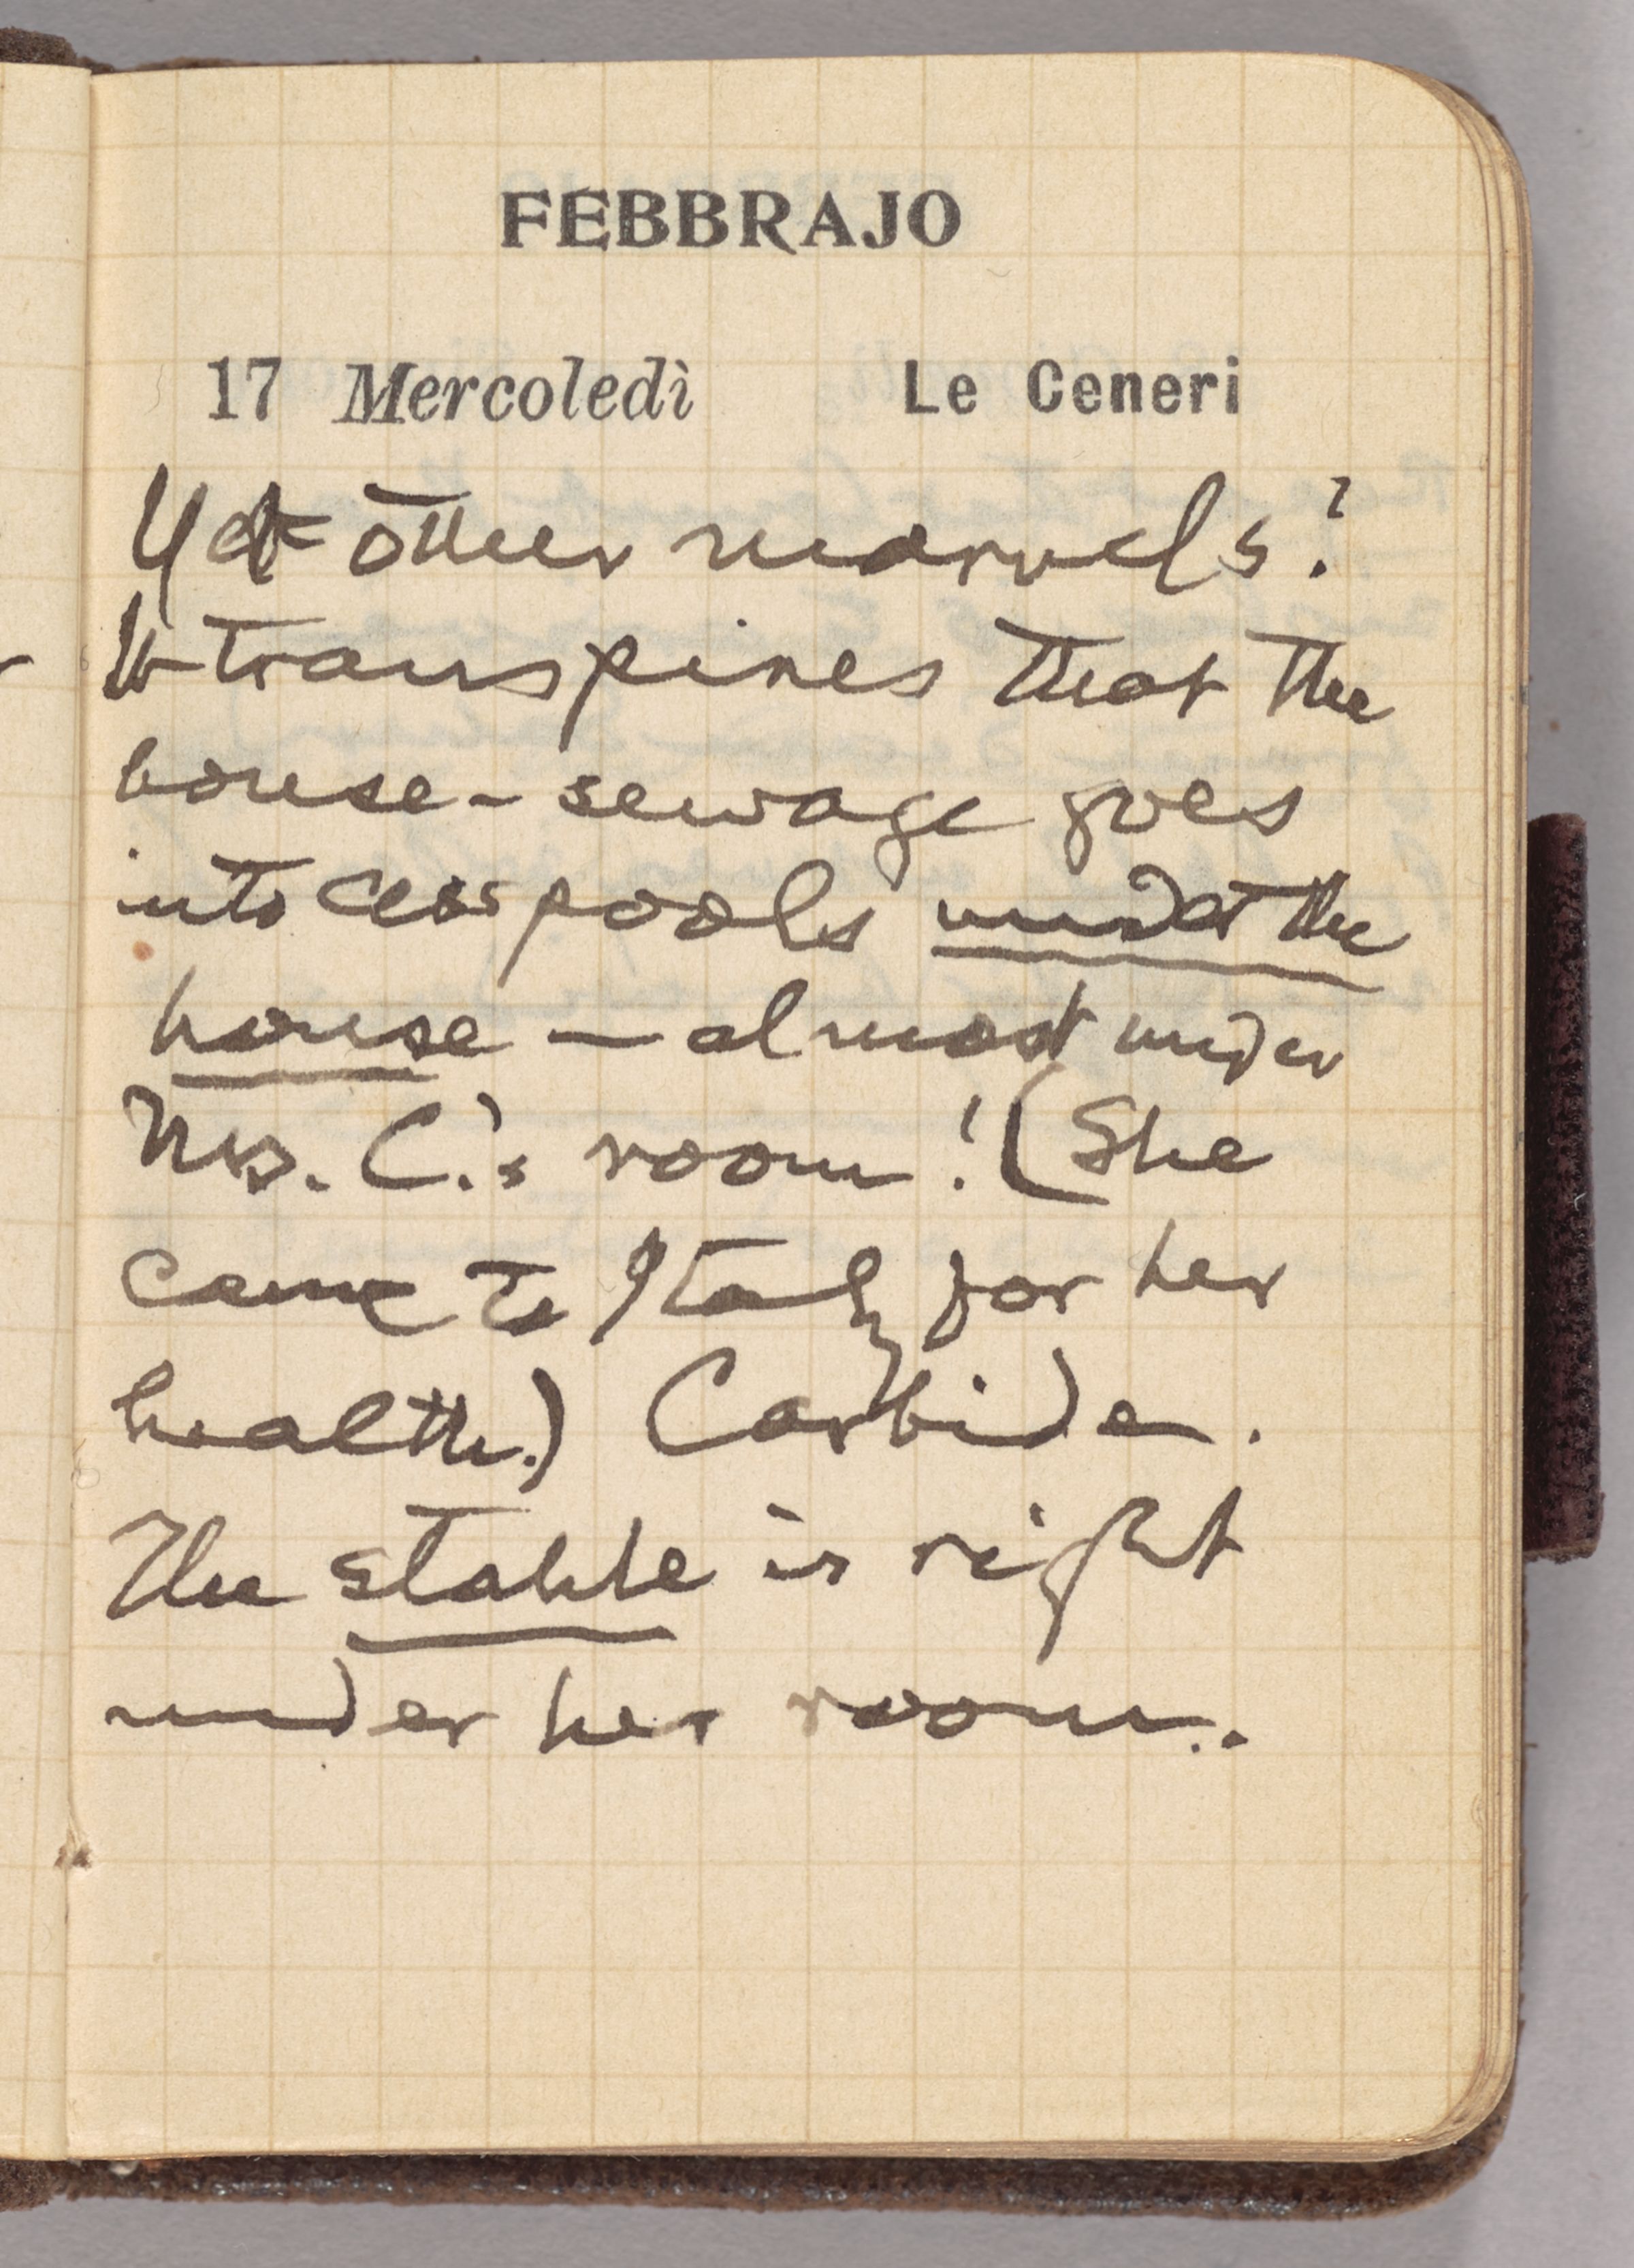 FEBBRAJO
17 Mercoledì Le Ceneri
Yet other marvels?
It transpires that the
house-sewage goes
into cesspools under the
house — almost under
Mrs. C.'s room! (She
came to Italy for her
health.) Carbide.
The stable is right
under her room.